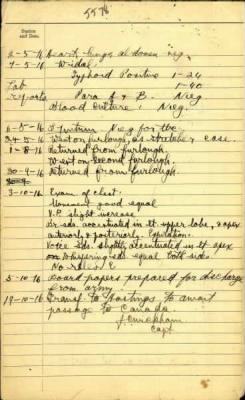 5576
Station
and Date.
2-5-16 Heart, lungs, abdomen neg.
7-5-16 Widal.
Typhoid Positive 1-24
Lab 1-40
reports Para A & B. Neg.
Blood Culture: Neg.
6-5-16 Sputum Neg for tbc
24-5-16 Went on furlough, as stretcher case.
1-8-16 Returned from furlough.
Went on second furlough.
30-9-16 Returned from furlough.
3-10-16 Exam of chest.
Movement good equal
V.F. slight increase
Br. sds. accentuated in rt. upper lobe, & apex
anteriorly & posteriorly. Expiration.
Voice sds. slightly accentuated in rt apex
Whispering sds equal both sides.
No rales.
5-10-16 Board papers prepared for discharge
from army.
19-10-16 Transf. to Hastings to await
passage to Canada.
Capt